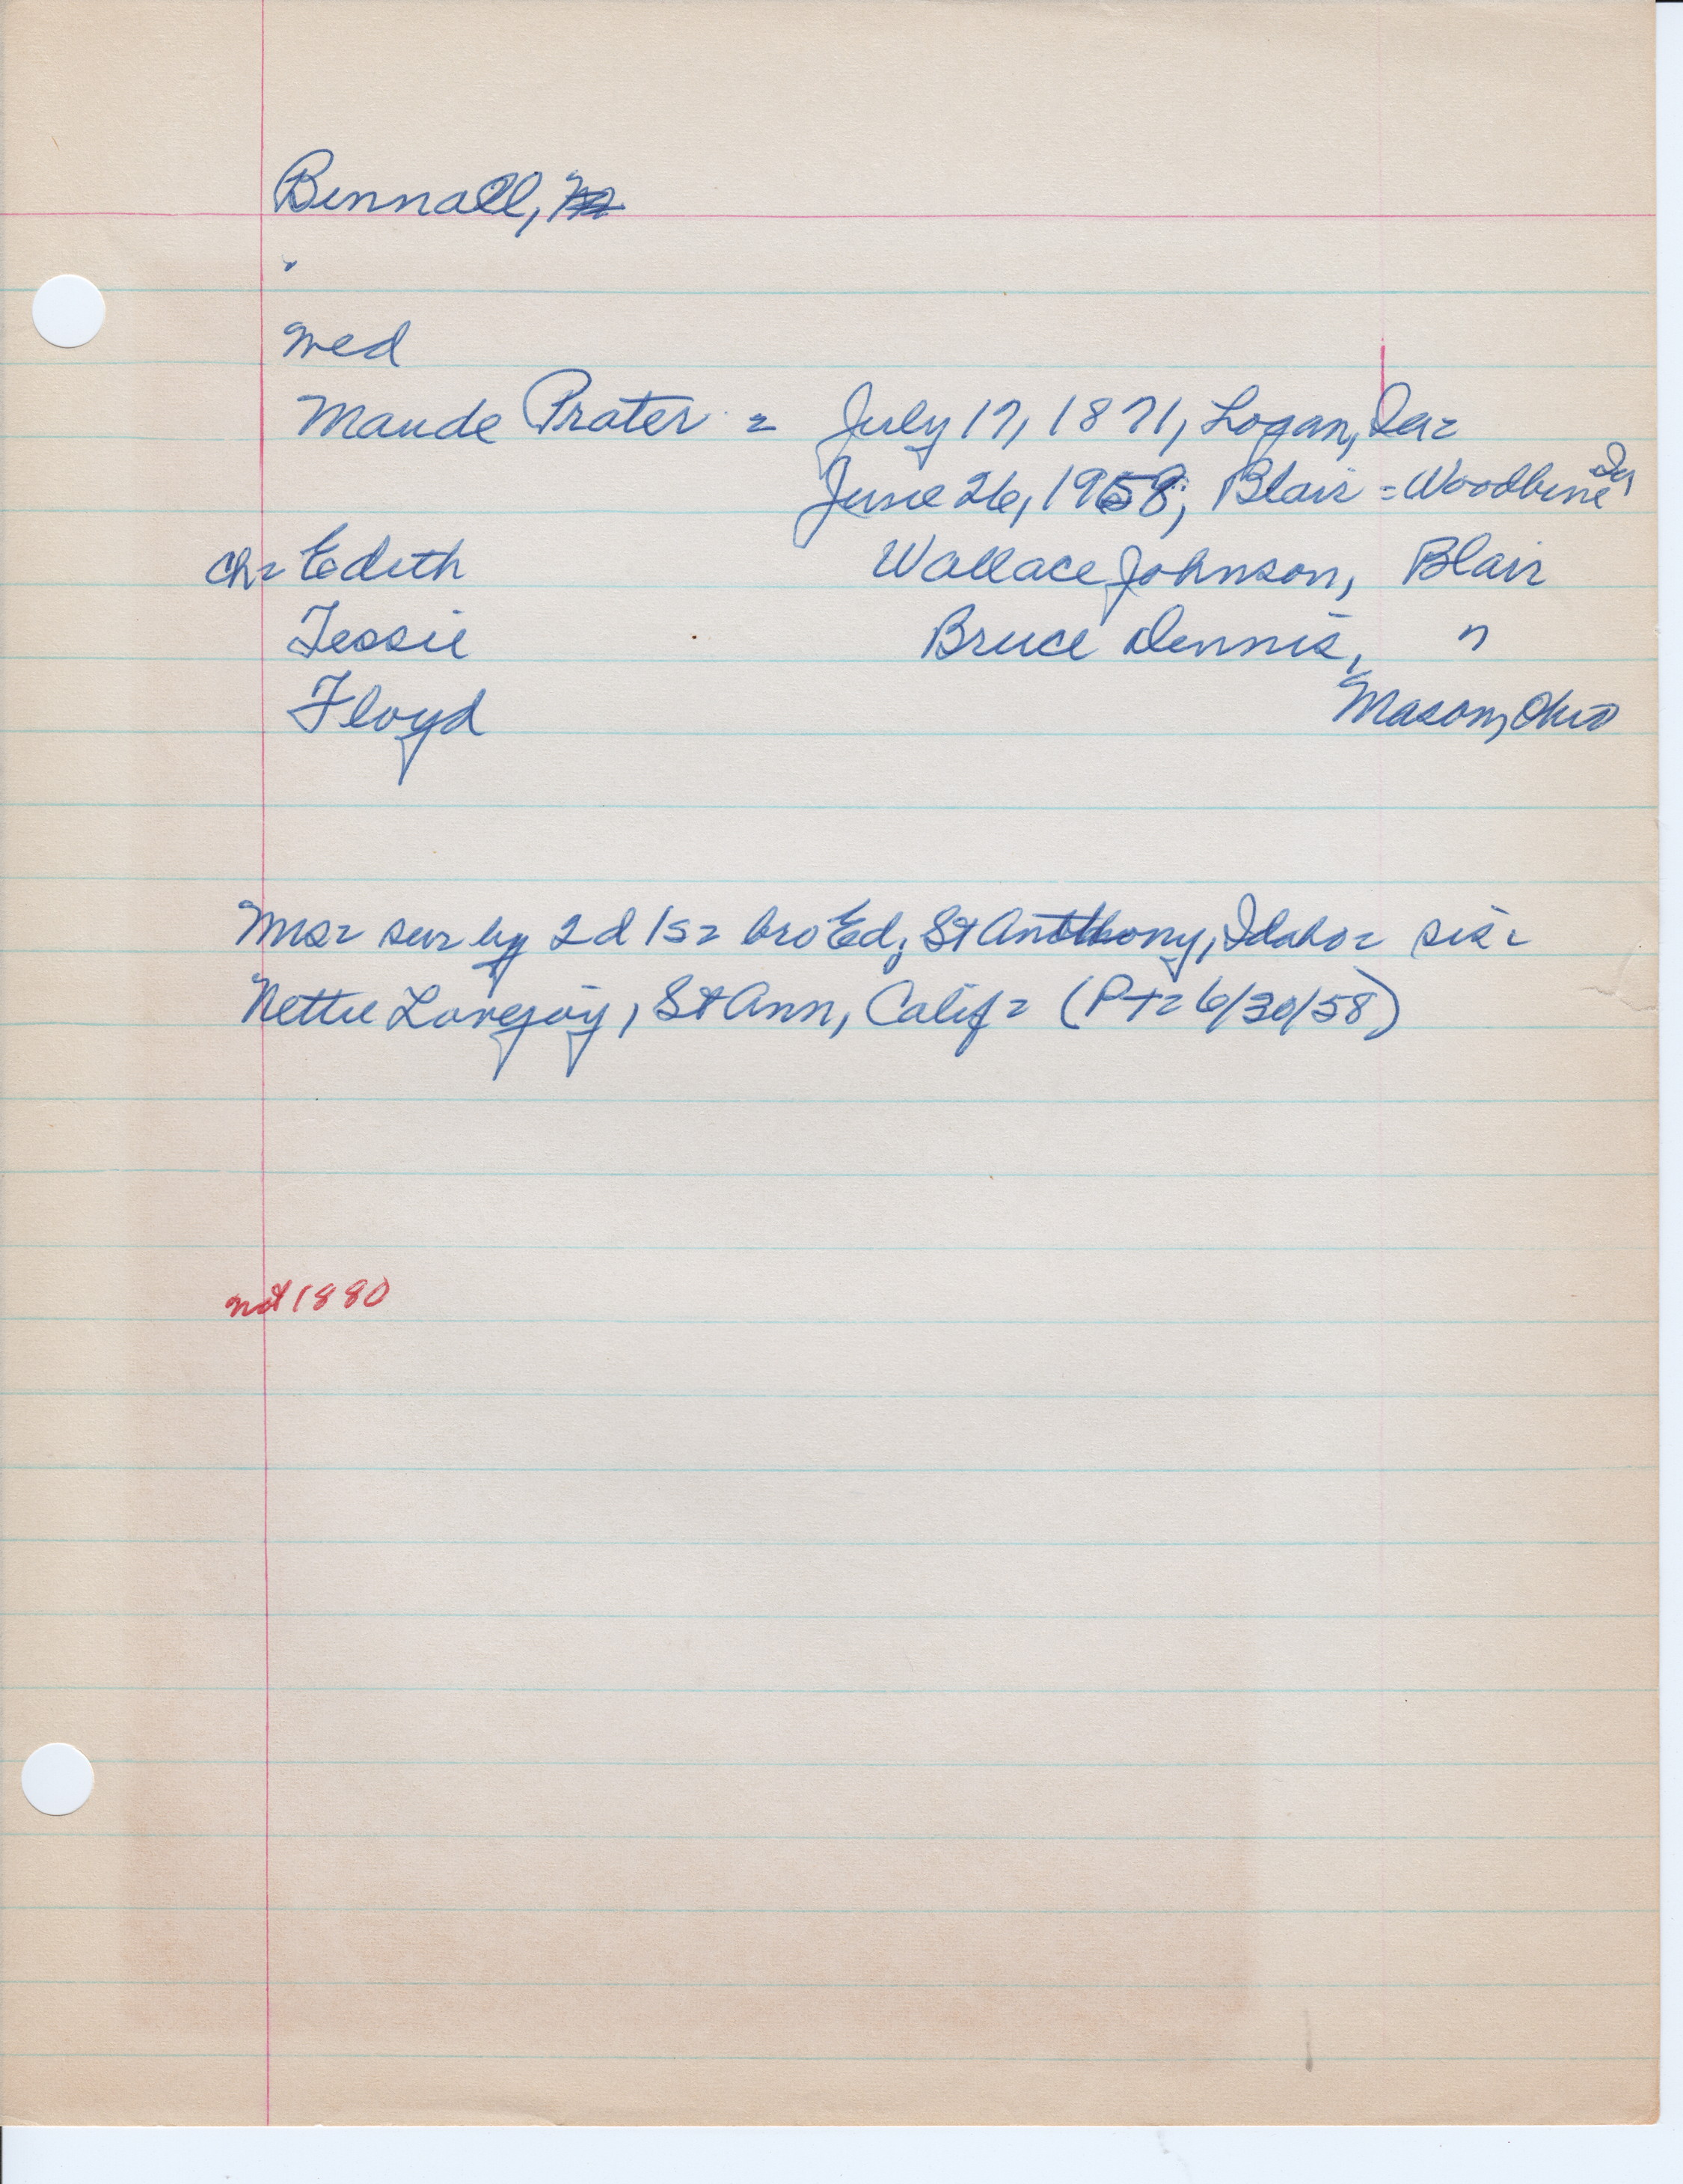 Bennall,
med
Maude Prater = July 17, 1871, Logan, Ia=
June 26, 1958, Blair = Woodbine Ia
Ch= Edith Wallace Johnson, Blair
Tessie Bruce Dennis, "
Floyd Mason, Ohio
Mrs= sur by 2 d 1s = bro Ed, St Anthony, Idaho = sis =
Nettie Lovejoy, St Ann, Calif = (PT= 6/30/58)
not 1880